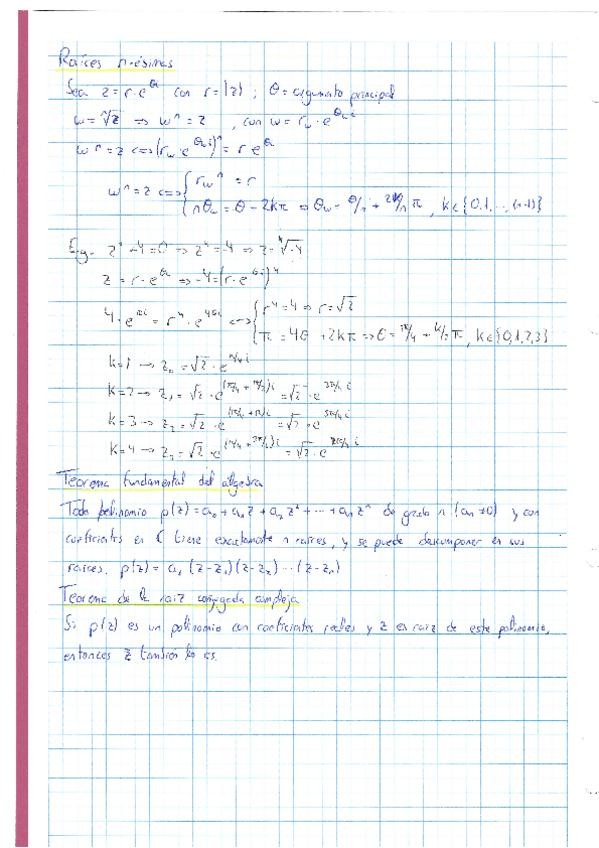 Raíces n-ésimas
Sea z = r·e^θi con r = |z| ; θ = argumento principal
w = ⁿ√z ⇒ wⁿ = z , con w = r_w·e^θ_w i
wⁿ = z ⇔ (r_w·e^θ_w i)ⁿ = r·e^θi
wⁿ = z ⇔ { r_wⁿ = r
{ nθ_w = θ - 2kπ ⇒ θ_w = θ/n + 2k/n π, k ∈ {0,1,...,(n-1)}
E.g. z⁴ - 4 = 0 → z⁴ = -4 ⇒ z = ⁴√-4
z = r·e^θi ⇒ -4 = (r·e^θi)⁴
4·e^πi = r⁴·e^4θi ⇔ { r⁴ = 4 ⇒ r = √2
{ π = 4θ + 2kπ ⇒ θ = π/4 + k/2 π, k ∈ {0,1,2,3}
k=1 → z₀ = √2·e^π/4 i
k=2 → z₁ = √2·e^(π/4 + π/2)i = √2·e^3π/4 i
k=3 → z₂ = √2·e^(π/4 + π)i = √2·e^5π/4 i
k=4 → z₃ = √2·e^(π/4 + 3π/2)i = √2·e^i
Teorema fundamental del álgebra
Todo polinomio p(z) = a₀ + a₁z + a₂z² + ... + aₙzⁿ de grado n (aₙ ≠ 0) y con
coeficientes en ℂ tiene exactamente n raíces, y se puede descomponer en sus
raíces. p(z) = aₙ (z-z₁)(z-z₂)···(z-zₙ)
Teorema de la raíz conjugada compleja
Si p(z) es un polinomio con coeficientes reales y z es raíz de este polinomio,
entonces z̄ también lo es.